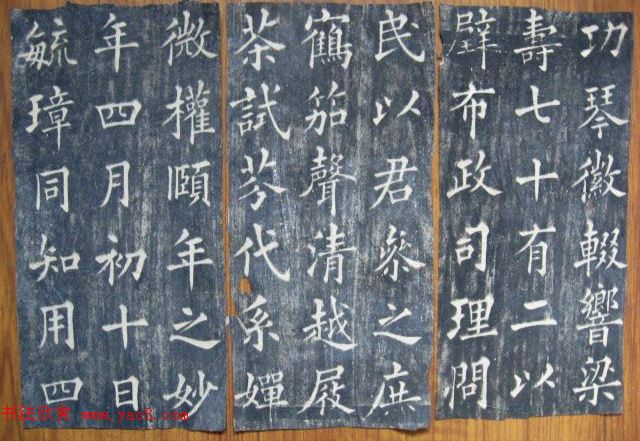 功琴徽輟響梁
壽七十有二以
布政司理問
民以君叅之庶
鶴笳聲清越屐
茶試芬代系嬋
微權頤年之妙
年四月初十日
毓璋同知用四
书法欣赏 www.yac8.com